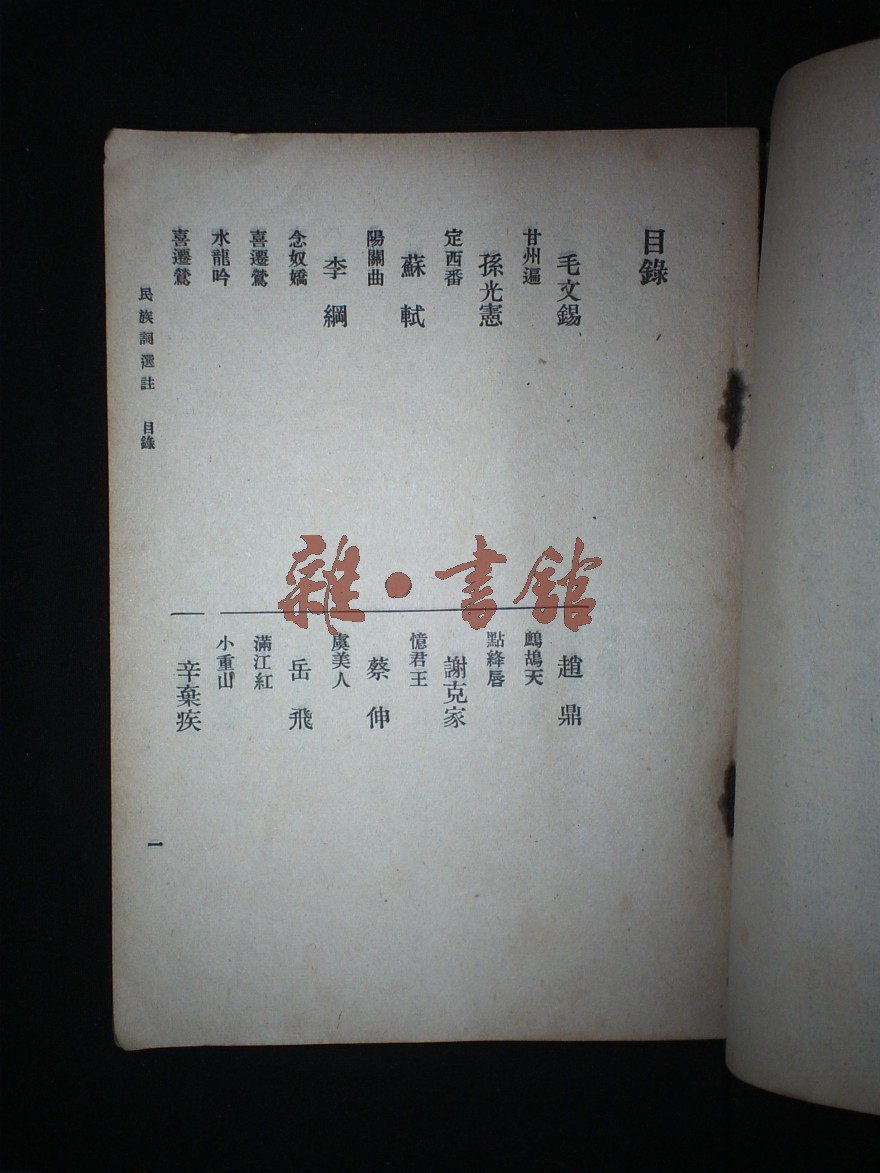 目錄
毛文錫
甘州遍
孫光憲
定西番
蘇軾
陽關曲
李綱
念奴嬌
喜遷鶯
水龍吟
喜遷鶯
趙鼎
鷓鴣天
點絳唇
謝克家
憶君王
蔡伸
虞美人
岳飛
滿江紅
小重山
辛棄疾
民族詞選註 目錄
一
雜·書館